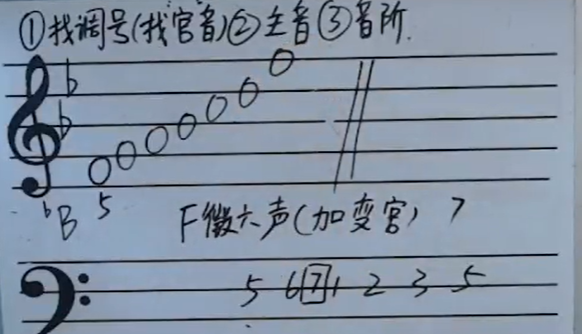 ①找调号(找宫音)②主音③音阶.
♭B 5 F徵六声(加变宫) 7
5 6 7 1 2 3 5